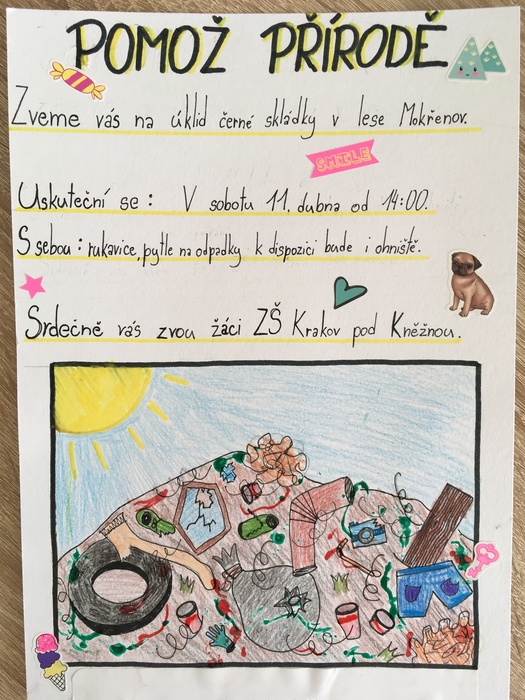 POMOŽ PŘÍRODĚ
Zveme vás na úklid černé skládky v lese Mokřenov.
SMILE
Uskuteční se: V sobotu 11. dubna od 14:00.
S sebou: rukavice, pytle na odpadky k dispozici bude i ohniště.
Srdečně vás zvou žáci ZŠ Krakov pod Kněžnou.